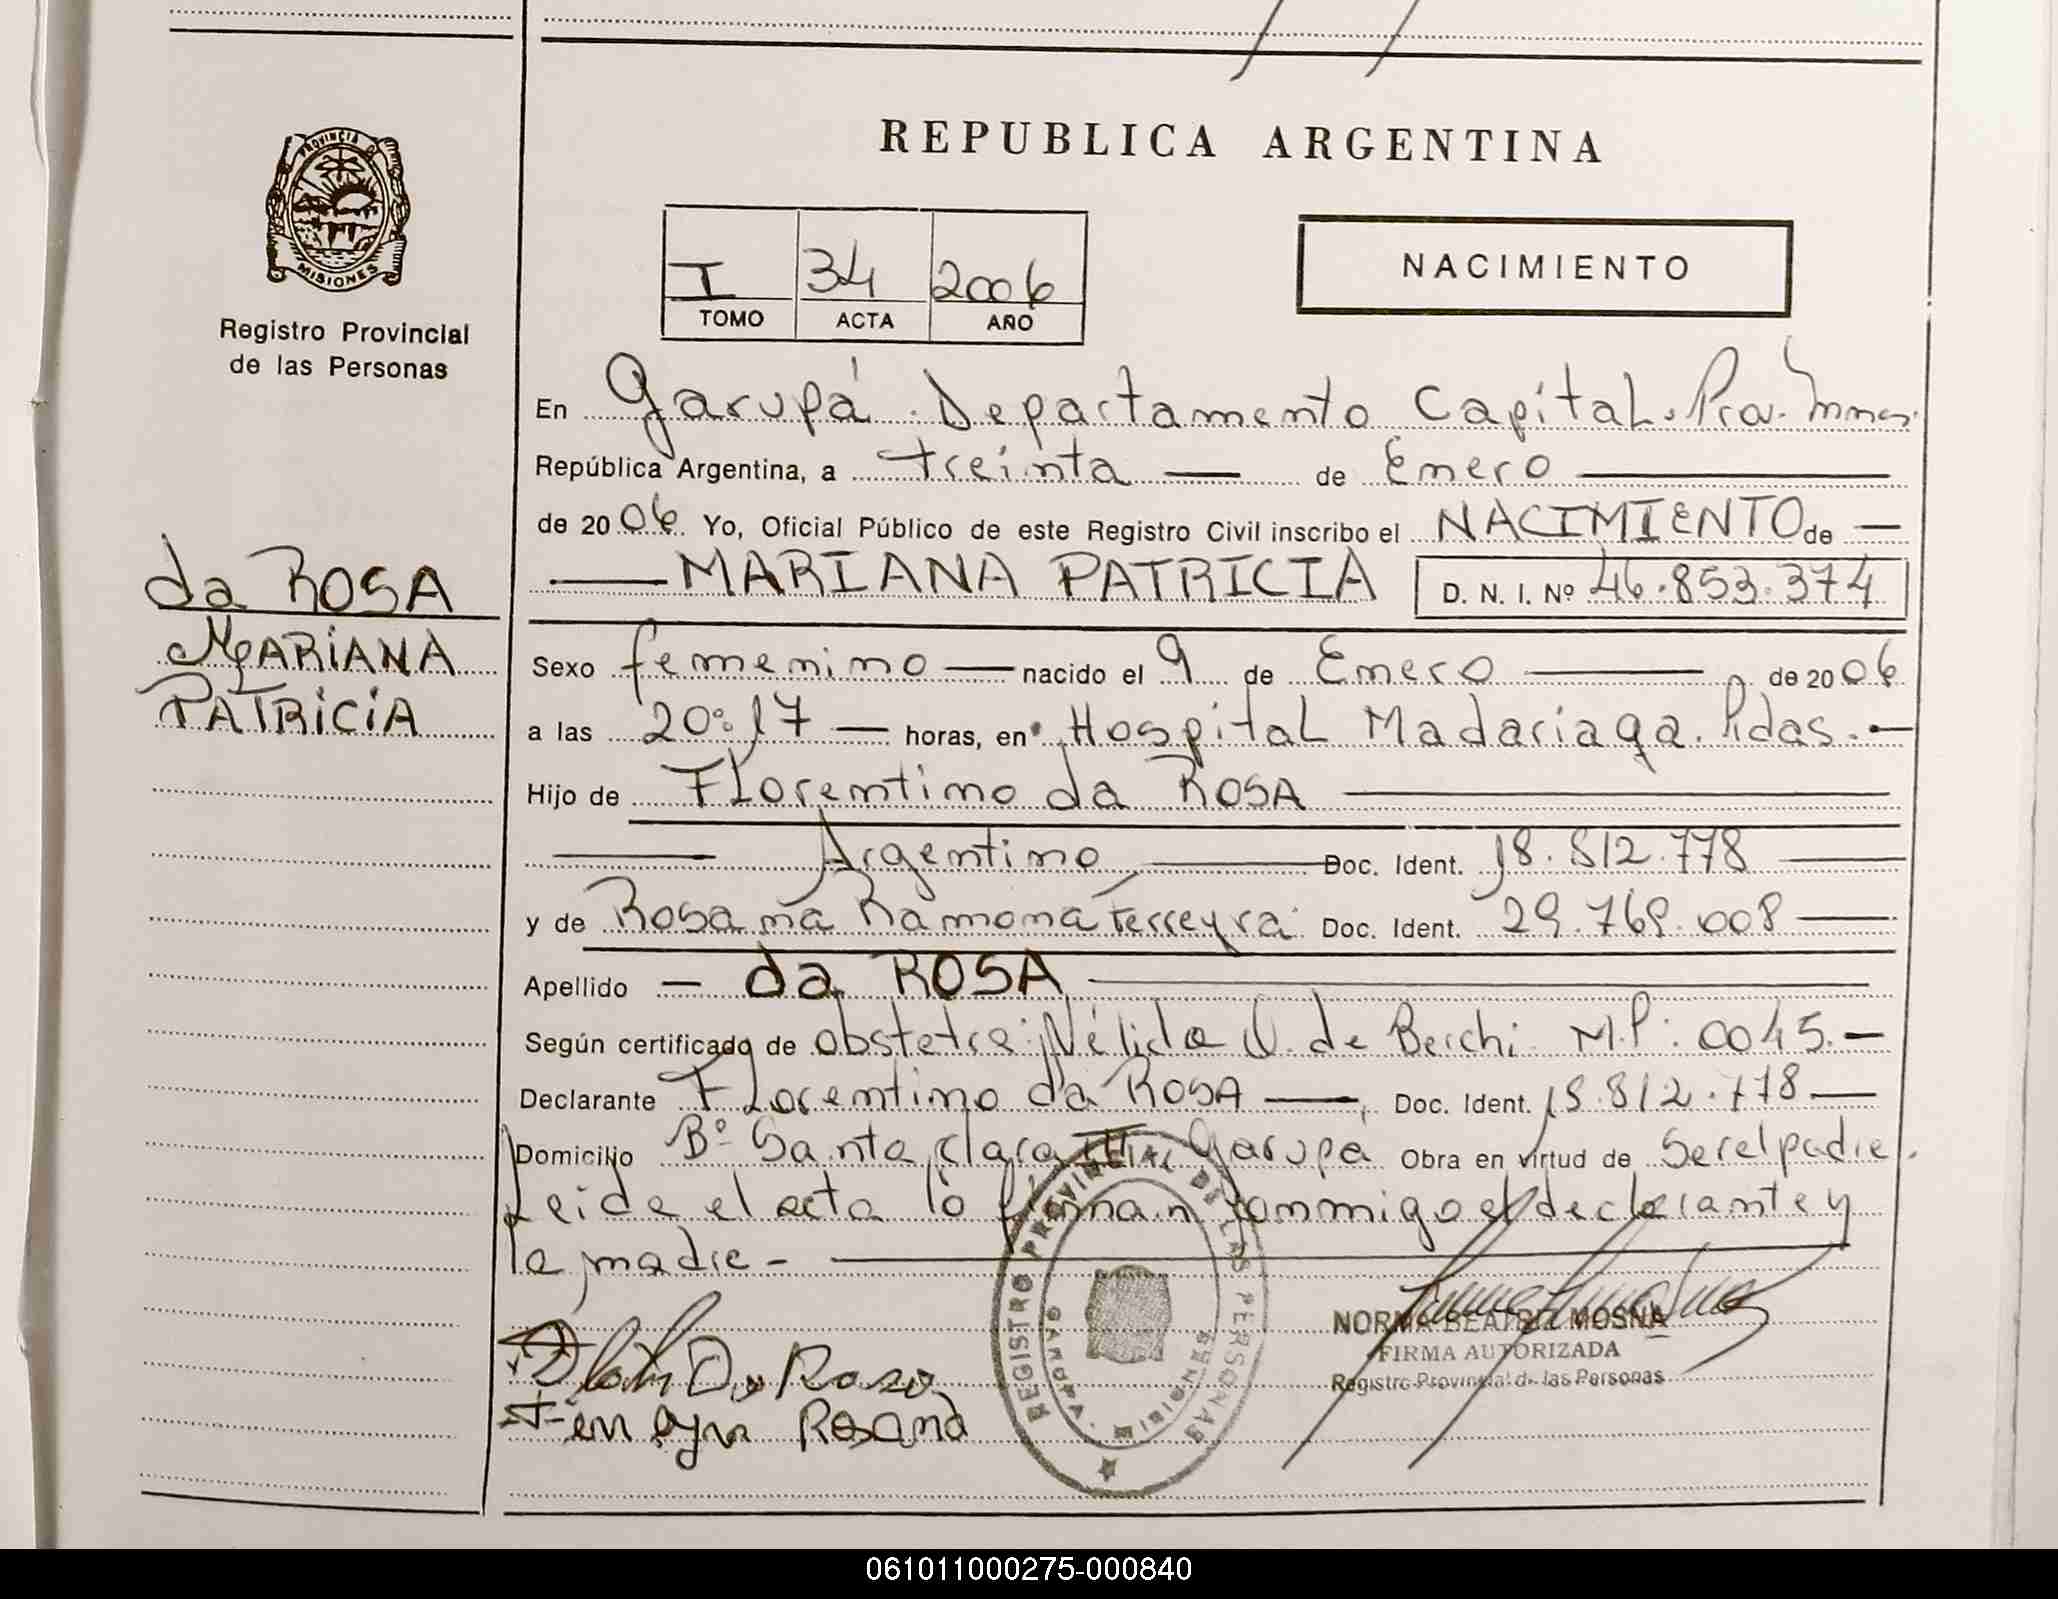 REPUBLICA ARGENTINA
PROVINCIA D
MISIONES
Registro Provincial
de las Personas
I 34 2006
TOMO ACTA AÑO
NACIMIENTO
En Garupá. Departamento Capital. Prov. Mnes.
República Argentina, a treinta — de Enero —
de 2006 Yo, Oficial Público de este Registro Civil inscribo el NACIMIENTO de —
— MARIANA PATRICIA D. N. I. Nº 46.853.374
da ROSA
MARIANA
PATRICIA
Sexo femenino — nacido el 9 de Enero — de 2006
a las 20:17 — horas, en Hospital Madariaga. Pdas. —
Hijo de Florentino da ROSA —
— Argentino — Doc. Ident. 18.812.778 —
y de Rosana Ramona Ferreyra. Doc. Ident. 29.769.008 —
Apellido — da ROSA —
Según certificado de obstetra: Nélida de Berchi. M.P: 0045. —
Declarante Florentino da ROSA —, Doc. Ident. 18.812.778 —
Domicilio Bº Santa Clara III Garupá Obra en virtud de Ser el padre.
Leida el acta lo firman conmigo el declarante y
la madre - —
REGISTRO PROVINCIAL DE LAS PERSONAS
GARUPA MISIONES
NORMA BEATRIZ MOSNA
FIRMA AUTORIZADA
Registro Provincial de las Personas
Da Rosa
Rosana
061011000275-000840